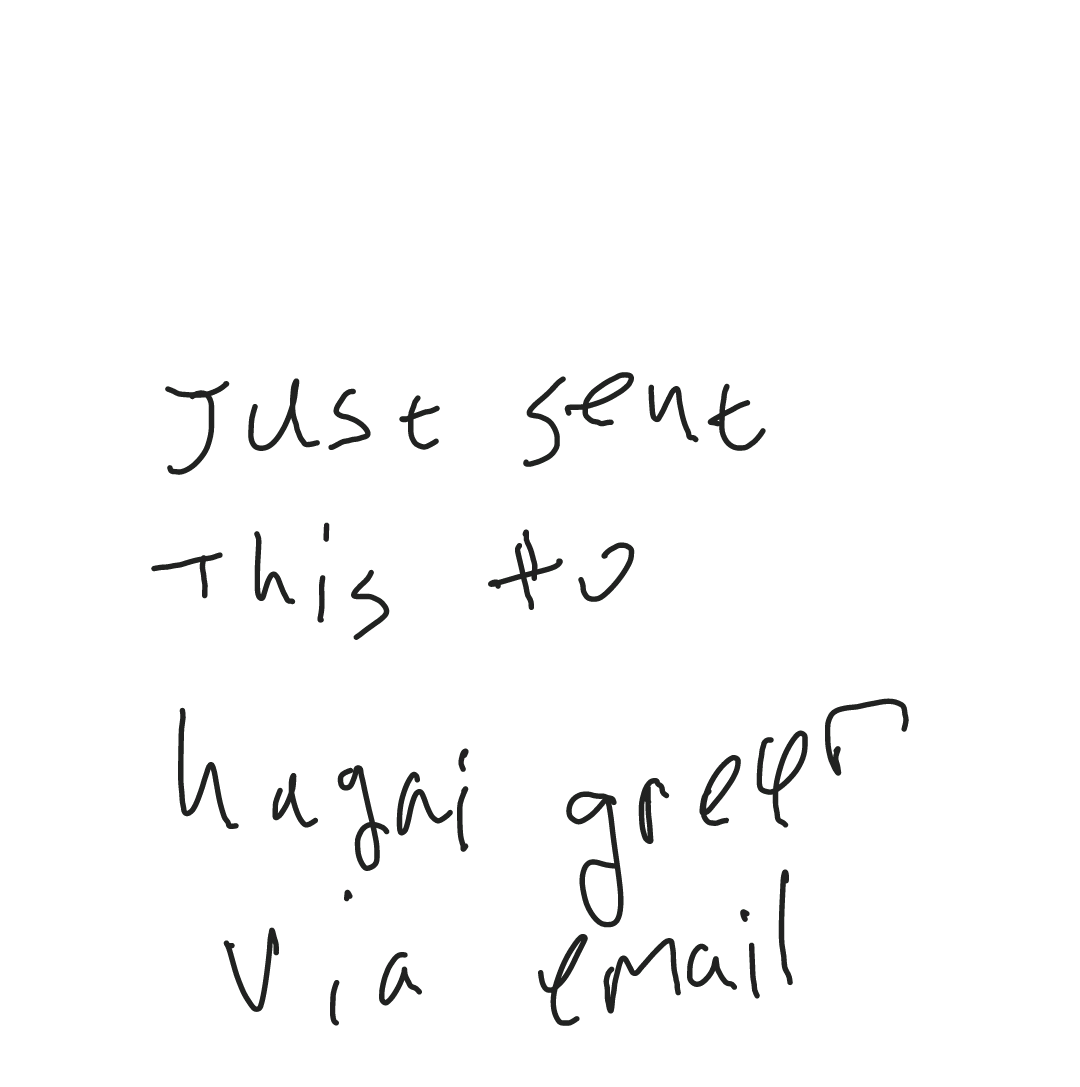 Just sent
This to
hagai greer
via email